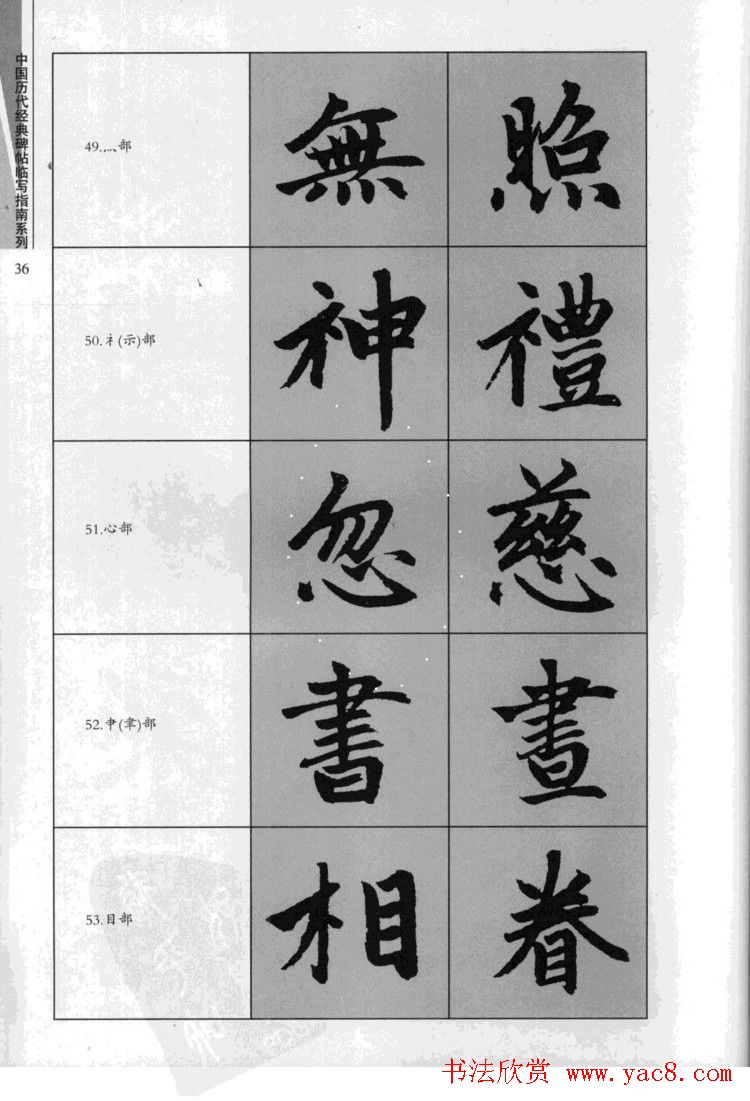 中国历代经典碑帖临写指南系列
36
49.灬部
無 照
50.礻(示)部
神 禮
51.心部
忽 慈
52.肀(聿)部
書 晝
53.目部
相 眷
书法欣赏 www.yac8.com